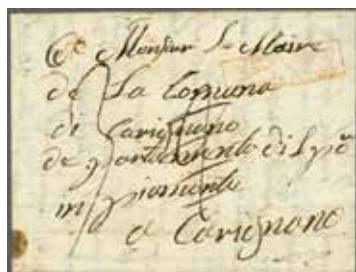 A Monsieur Le Maire
de La Comuna
di Carignano
departamento di Lpô
in piamonte
a Carignano